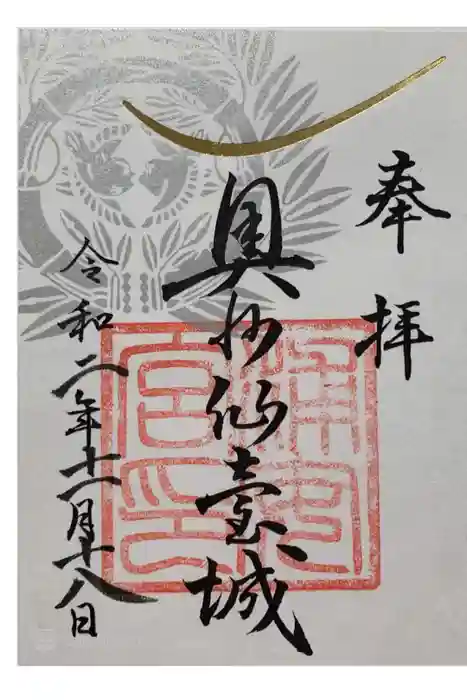 奉拝
奥州仙臺城
令和二年十一月十八日